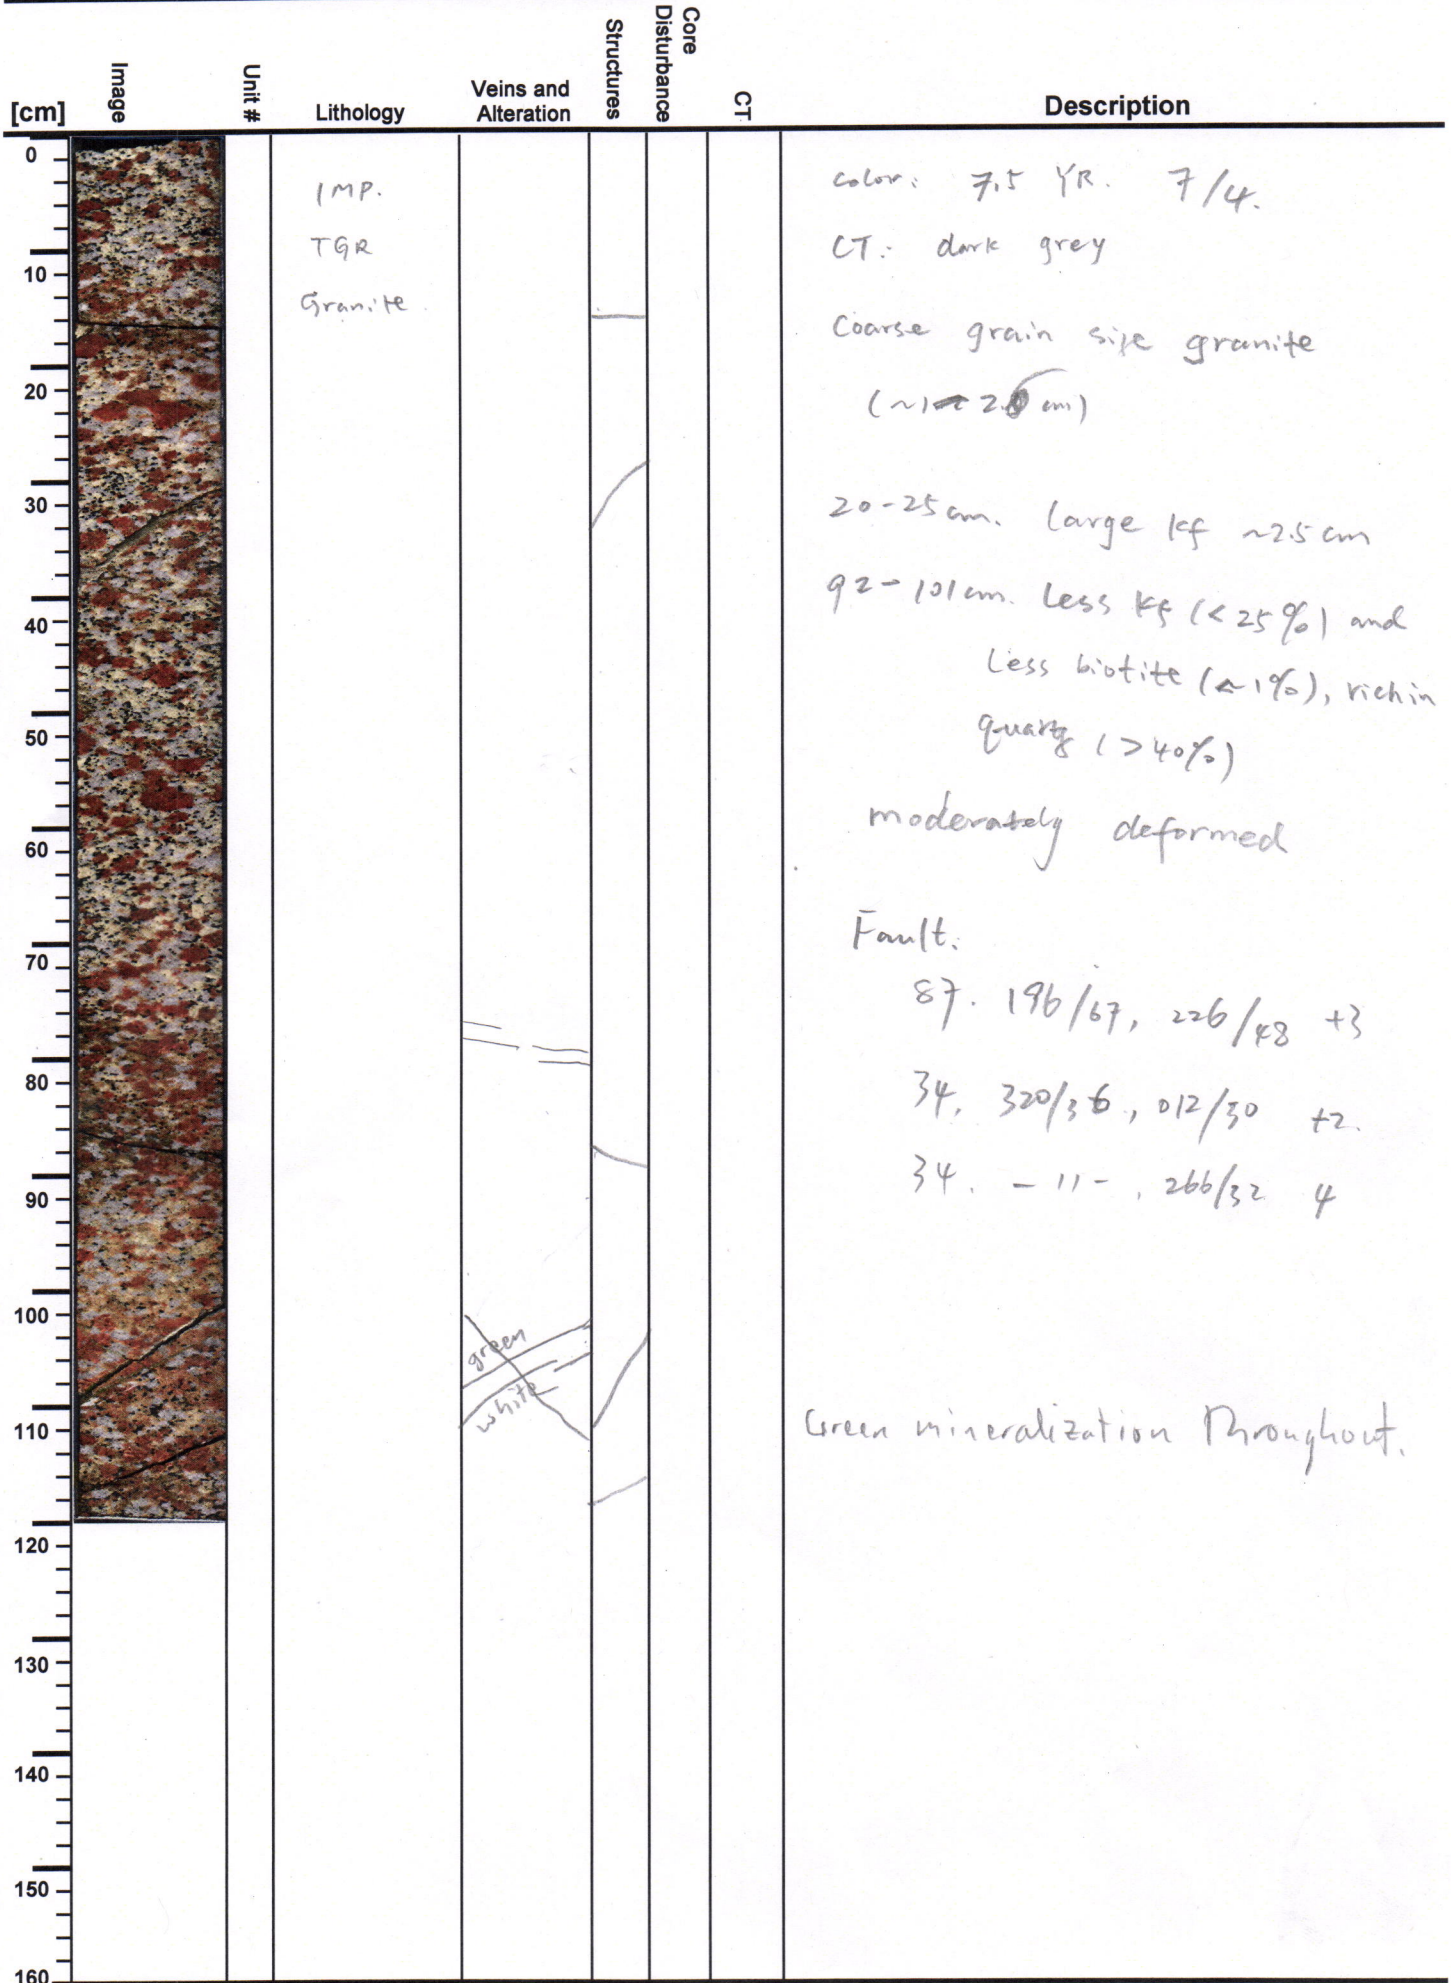 [cm]
Image
Unit #
Lithology
Veins and
Alteration
Structures
Core
Disturbance
CT
Description
0
10
20
30
40
50
60
70
80
90
100
110
120
130
140
150
160
IMP.
TGR
Granite.
green
white
color: 7.5 YR. 7/4.
CT: dark grey
Coarse grain size granite
(~1 2. cm)
20-25cm. Large kf ~2.5cm
92-101cm. Less kf (<25%) and
Less biotite (~1%), rich in
quartz (>40%)
moderately deformed
Fault.
87. 196/67, 226/48 +3
34. 320/36, 012/30 +2.
34. -11-, 266/32 4
Green mineralization Throughout.